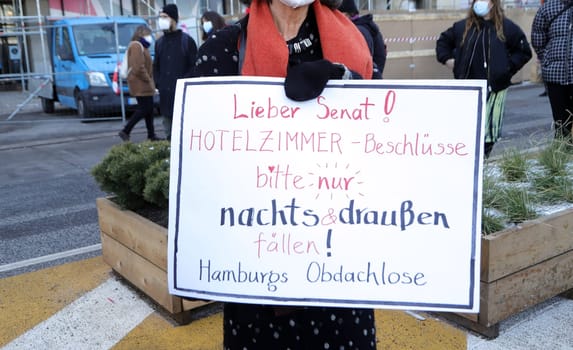 Lieber Senat!
HOTELZIMMER-Beschlüsse
bitte nur
nachts & draußen
fällen!
Hamburgs Obdachlose